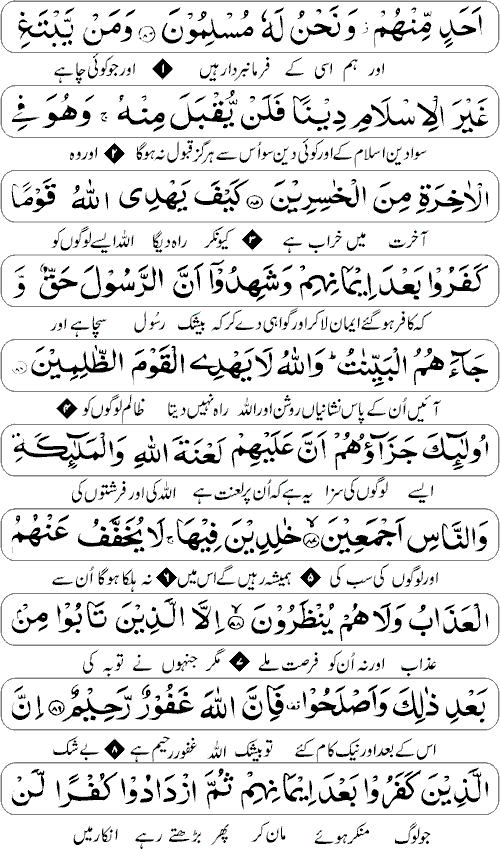 اَحَدٍ مِّنْهُمْ ۖ وَنَحْنُ لَهٗ مُسْلِمُوْنَ ﴿۸۴﴾ وَمَنْ يَّبْتَغِ
اور ہم اسی کے فرمانبردار ہیں ۱ اور جو کوئی چاہے
غَيْرَ الْاِسْلَامِ دِيْنًا فَلَنْ يُّقْبَلَ مِنْهُ ۚ وَهُوَ فِي
سوا دین اسلام کے اور کوئی دین سو اُس سے ہرگز قبول نہ ہوگا ۲ اور وہ
الْاٰخِرَةِ مِنَ الْخٰسِرِيْنَ ﴿۸۵﴾ كَيْفَ يَهْدِى اللّٰهُ قَوْمًا
آخرت میں خراب ہے ۳ کیونکر راہ دیگا اللہ ایسے لوگوں کو
كَفَرُوْا بَعْدَ اِيْمَانِهِمْ وَشَهِدُوْٓا اَنَّ الرَّسُوْلَ حَقٌّ وَّ
کہ کافر ہو گئے ایمان لا کر اور گواہی دے کر کہ بیشک رسُول سچا ہے اور
جَآءَهُمُ الْبَيِّنٰتُ ؕ وَاللّٰهُ لَا يَهْدِى الْقَوْمَ الظّٰلِمِيْنَ ﴿۸۶﴾
آئیں اُن کے پاس نشانیاں روشن اور اللہ راہ نہیں دیتا ظالم لوگوں کو ۴
اُولٰٓئِكَ جَزَآؤُهُمْ اَنَّ عَلَيْهِمْ لَعْنَةَ اللّٰهِ وَالْمَلٰٓئِكَةِ
ایسے لوگوں کی سزا یہ ہے کہ اُن پر لعنت ہے اللہ کی اور فرشتوں کی
وَالنَّاسِ اَجْمَعِيْنَ ﴿۸۷﴾ خٰلِدِيْنَ فِيْهَا ۚ لَا يُخَفَّفُ عَنْهُمُ
اور لوگوں کی سب کی ۵ ہمیشہ رہیں گے اس میں ۶ نہ ہلکا ہوگا اُن سے
الْعَذَابُ وَلَا هُمْ يُنْظَرُوْنَ ﴿۸۸﴾ اِلَّا الَّذِيْنَ تَابُوْا مِنْۢ
عذاب اور نہ اُن کو فرصت ملے ۷ مگر جنہوں نے توبہ کی
بَعْدِ ذٰلِكَ وَاَصْلَحُوْا ۟ فَاِنَّ اللّٰهَ غَفُوْرٌ رَّحِيْمٌ ﴿۸۹﴾ اِنَّ
اس کے بعد اور نیک کام کئے تو بیشک اللہ غفور رحیم ہے ۸ بے شک
الَّذِيْنَ كَفَرُوْا بَعْدَ اِيْمَانِهِمْ ثُمَّ ازْدَادُوْا كُفْرًا لَّنْ
جو لوگ منکر ہوئے مان کر پھر بڑھتے رہے انکار میں